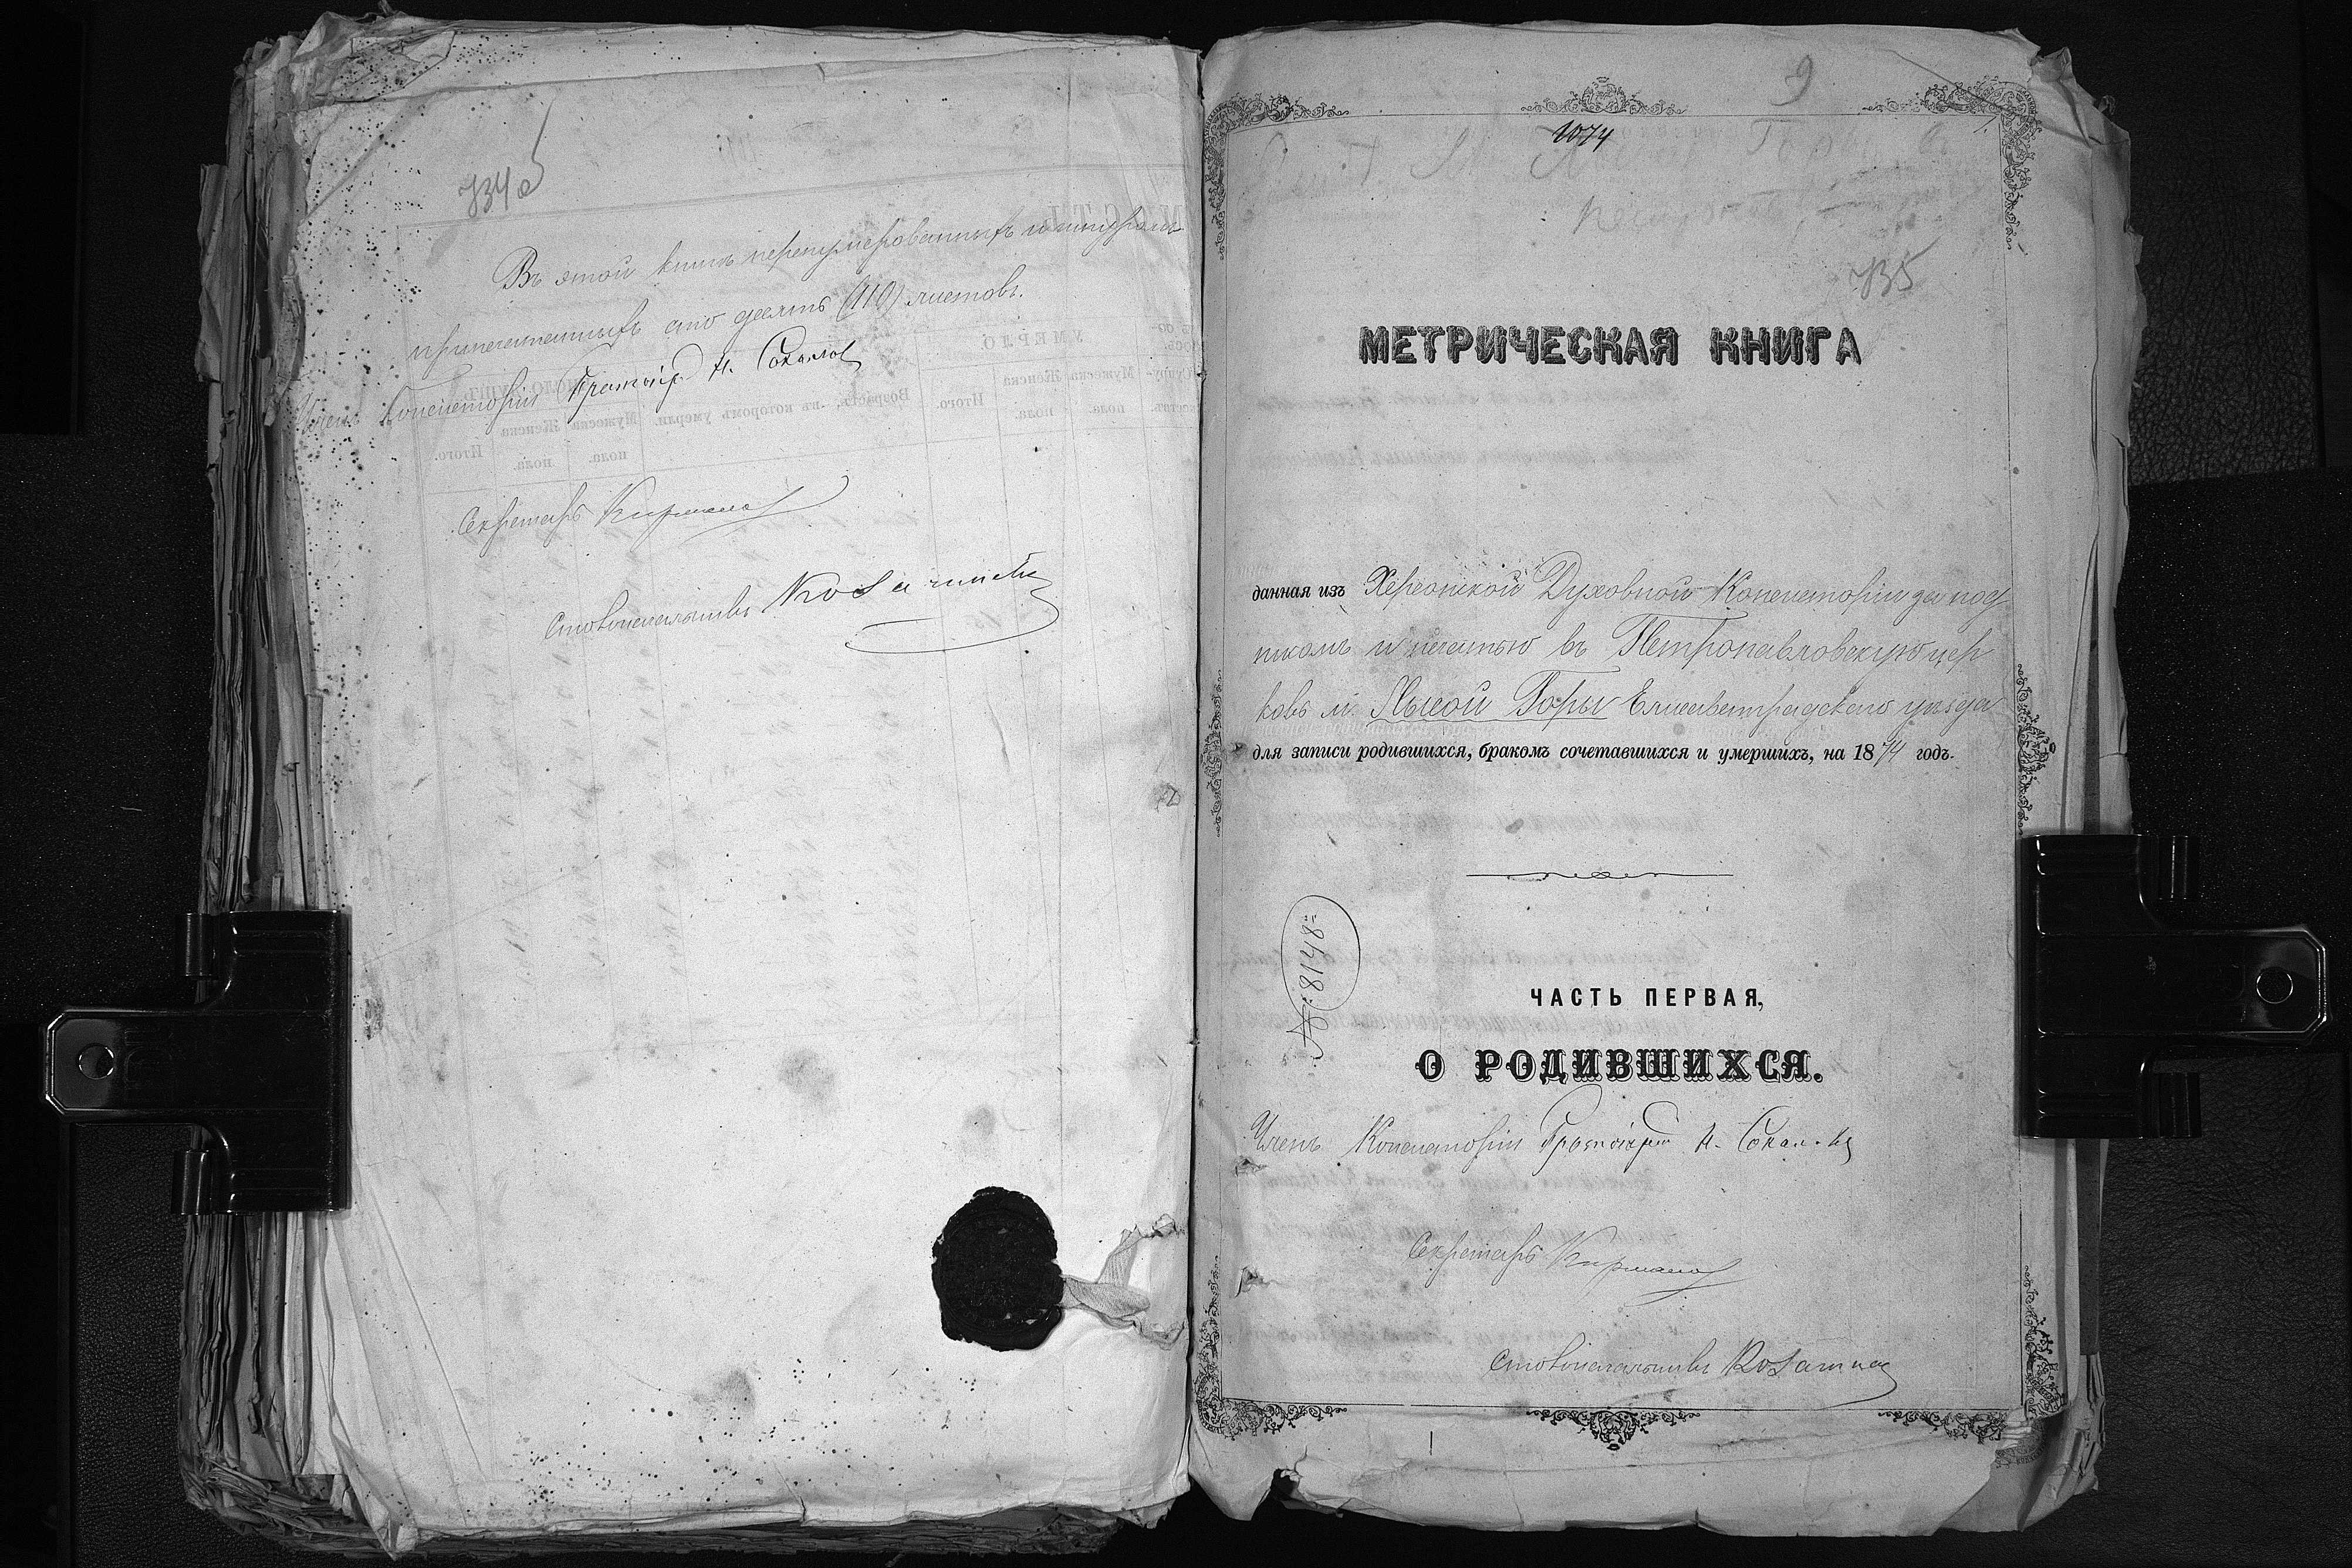 734 об
Въ этой книгѣ перенумерованныхъ и шнуром
припечатанныхъ сто десять (110) листовъ.
Членъ Консисторіи Протоіерей Н. Соколов
Секретарь
Столоначальникъ
9
1074
735
МЕТРИЧЕСКАЯ КНИГА
данная изъ Херсонской Духовной Консисторіи за шну
ркомъ и печатью въ Петропавловскую цер
ковь м. Лысой Горы Елисаветградскаго уѣзда
для записи родившихся, бракомъ сочетавшихся и умершихъ, на 1874 годъ.
№ 8148
ЧАСТЬ ПЕРВАЯ,
О РОДИВШИХСЯ.
Членъ Консисторіи Протоіерей Н. Соколов
Секретарь
Столоначальникъ